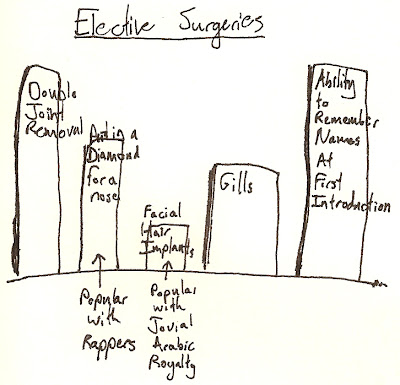 Elective Surgeries
Double
Joint
Removal
Put in a
Diamond
for a
nose
Facial
Hair
Implants
Gills
Ability
to
Remember
Names
At
First
Introduction
Popular
with
Rappers
Popular
with
Jovial
Arabic
Royalty